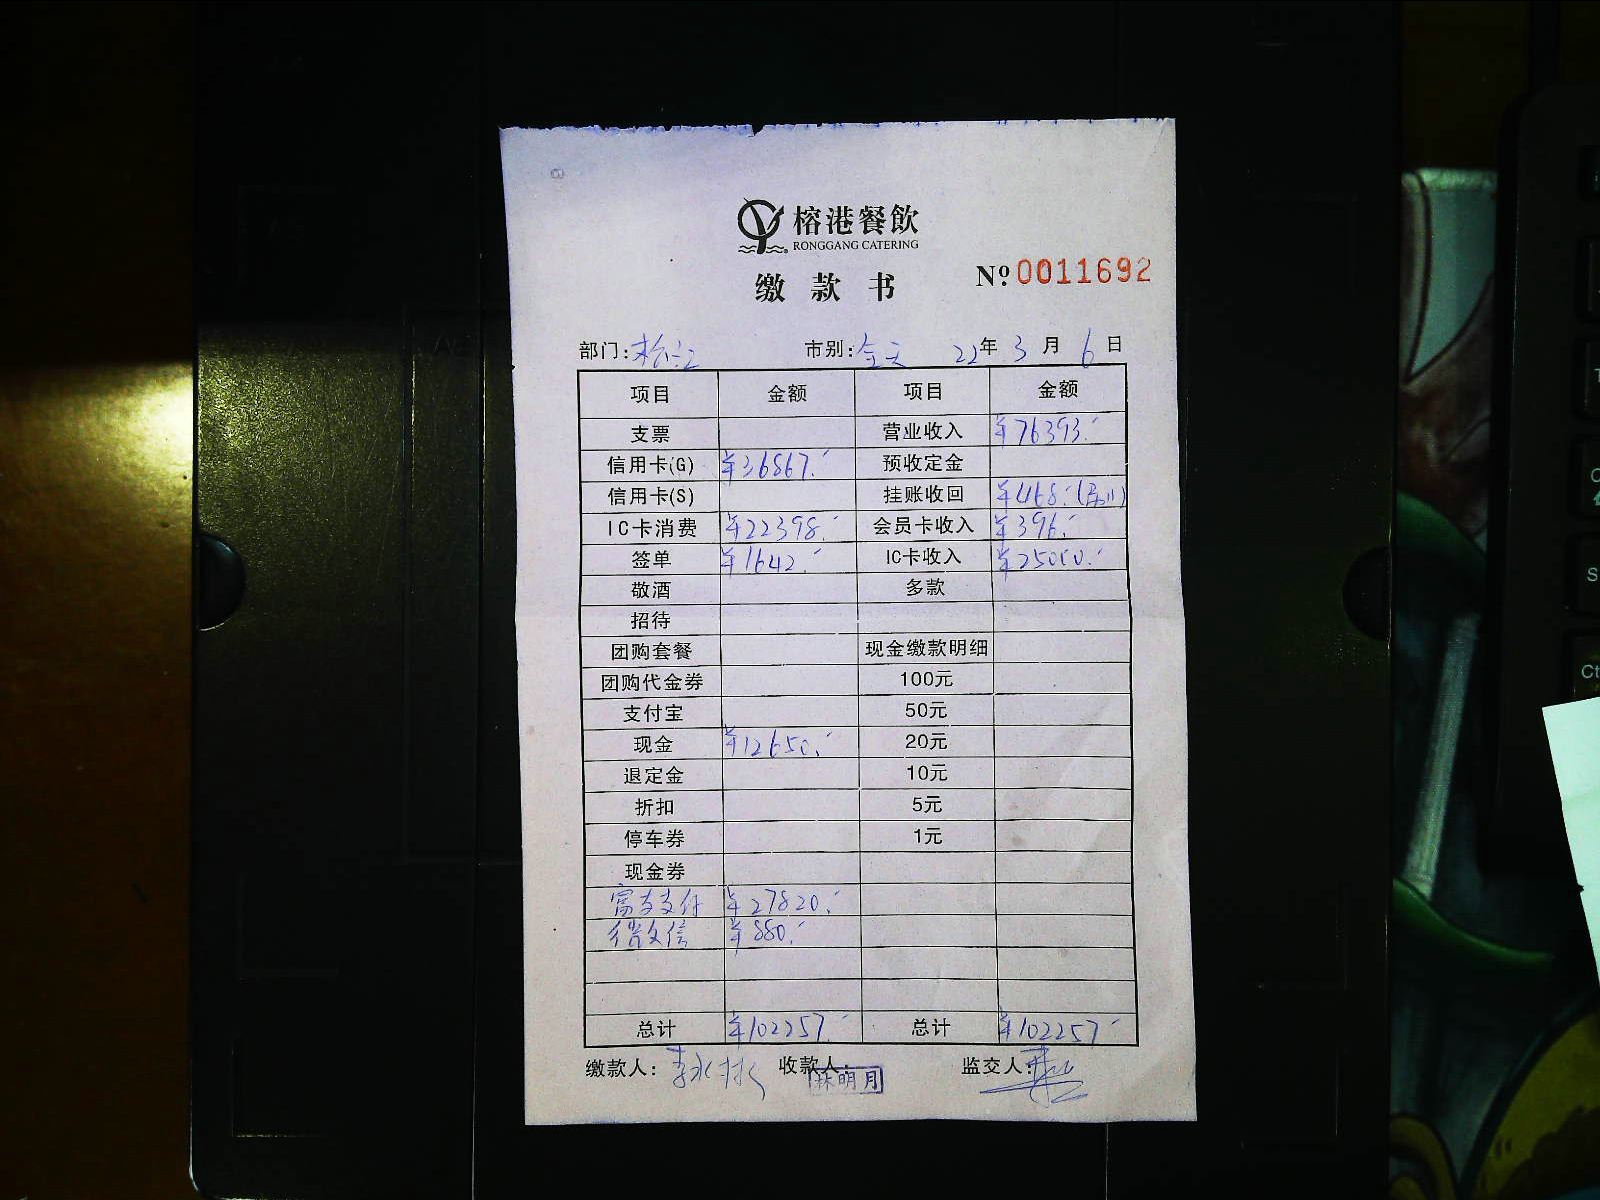 榕港餐飲
RONGGANG CATERING
缴款书
№ 0011692
部门:松江 市别:全天 22年3月6日
项目 金额 项目 金额
支票 营业收入 ¥76393.-
信用卡(G) ¥36867.- 预收定金
信用卡(S) 挂账收回 ¥468.-
IC卡消费 ¥22398.- 会员卡收入 ¥396.-
签单 ¥1642.- IC卡收入 ¥25000.-
敬酒 多款
招待
团购套餐 现金缴款明细
团购代金券 100元
支付宝 50元
现金 ¥12650.- 20元
退定金 10元
折扣 5元
停车券 1元
现金券
富友支付 ¥27820.-
微信 ¥880.-
总计 ¥102257.- 总计 ¥102257.-
缴款人: 收款人: 林明月 监交人: